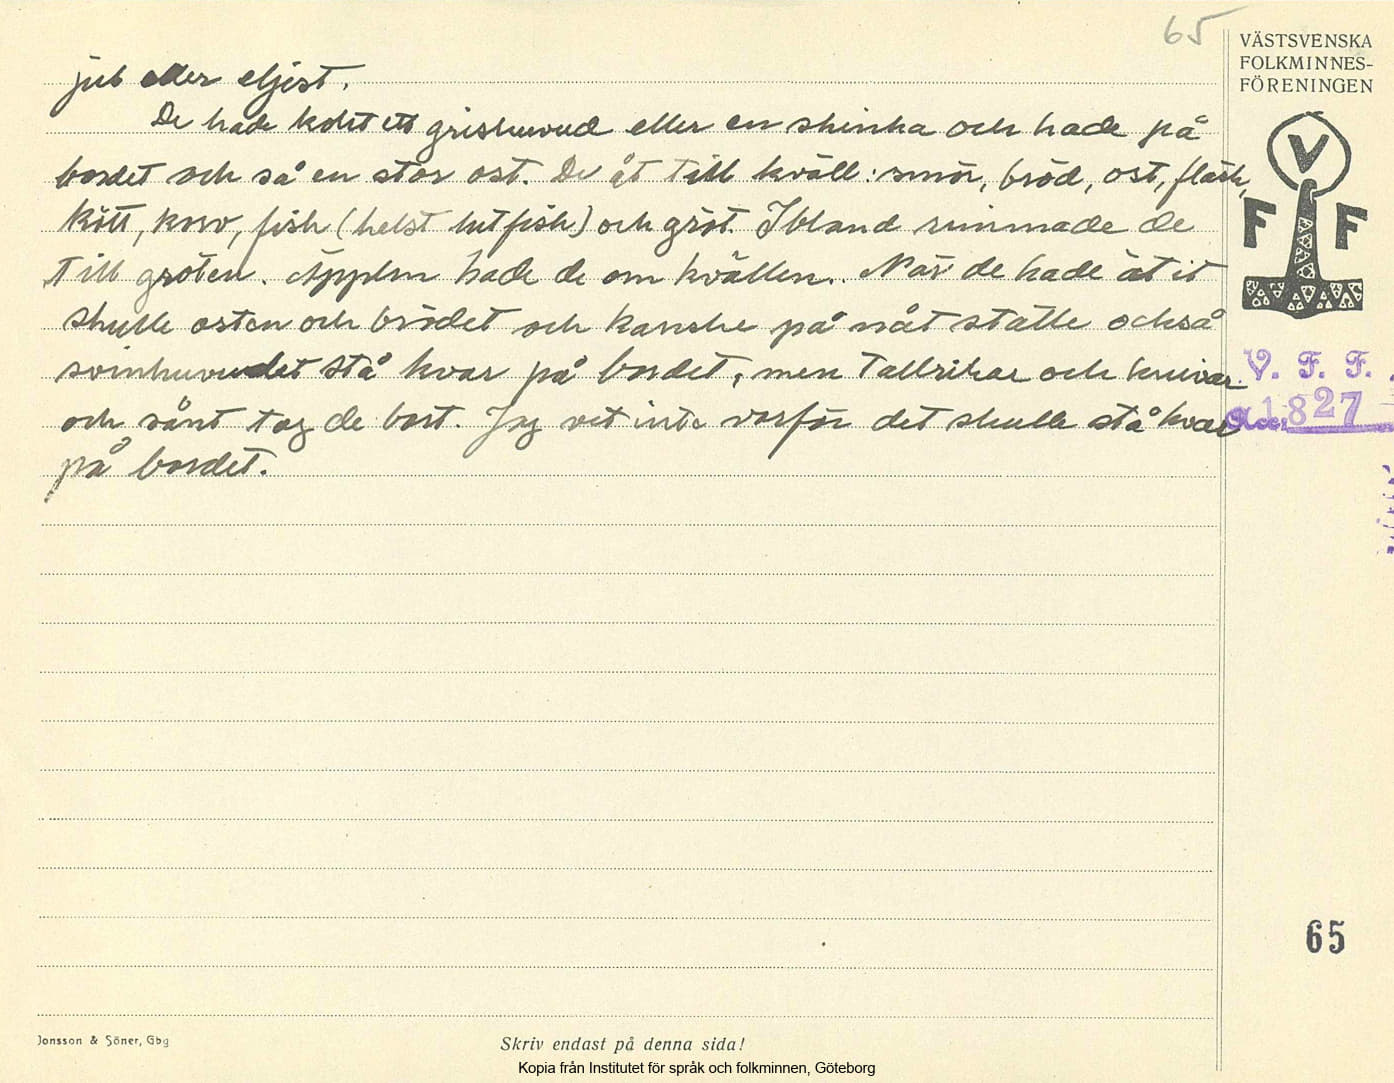 65
VÄSTSVENSKA
FOLKMINNES-
FÖRENINGEN
jul eller eljest.
De hade kokt ett grishuvud eller en skinka och hade på
bordet och så en stor ost. De åt till kväll: smör, bröd, ost, fläsk,
kött, korv, fisk (helst lutfisk) och gröt. Ibland rimmade de
till gröten. Äpplen hade de om kvällen. När de hade ätit
skulle osten och brödet och kanske på nåt ställe också
svinhuvudet stå kvar på bordet, men tallrikar och knivar
och sånt tog de bort. Jag vet inte varför det skulle stå kvar
på bordet.
V
F F
V. F. F.
Acc: 1827
65
Jonsson & Söner, Gbg
Skriv endast på denna sida!
Kopia från Institutet för språk och folkminnen, Göteborg